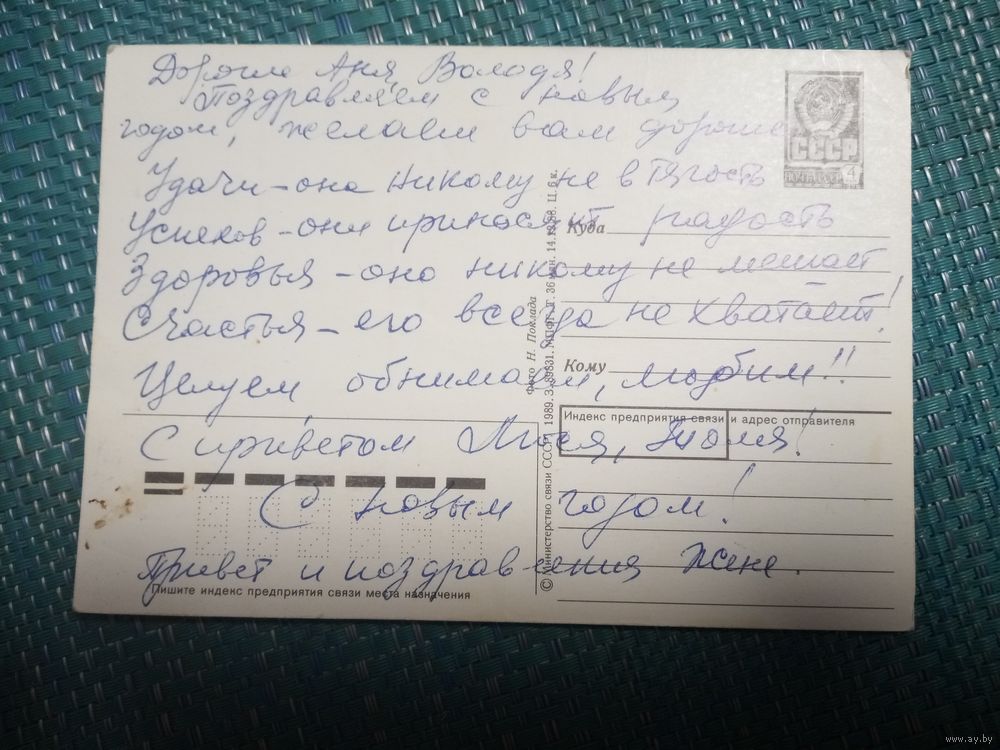 Дорогие Аня, Володя!
Поздравляем с новым
годом, желаем вам дорогие
Удачи - она никому не в тягость
Успехов - они приносят радость
Здоровья - оно никому не мешает
Счастья - его всегда не хватает!
Целуем обнимаем, любим!!
С приветом Люся, Толя!
С новым годом!
Привет и поздравления Жене.
СССР
4
Куда
Кому
Индекс предприятия связи и адрес отправителя
Пишите индекс предприятия связи места назначения
Фото Н. Поклада
© Министерство связи СССР. 1989. З. 89831. ППФГ. Т. 36 14.12.88. Ц. 6 к.
www.ay.by